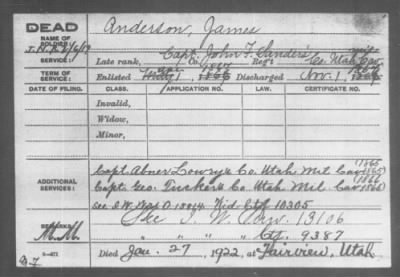 DEAD
NAME OF SOLDIER:
Anderson, James
SERVICE:
Capt. John F. Sanders'
Late rank, Co. Reg't Co. Utah Cav
TERM OF SERVICE:
Enlisted 1, 1866 Discharged Nov. 1
DATE OF FILING. CLASS. APPLICATION NO. LAW. CERTIFICATE NO.
Invalid,
Widow,
Minor,
ADDITIONAL SERVICES:
Capt. Abner Lowry's Co. Utah Mil Cav (1865)
Capt. Geo. Tucker's Co. Utah Mil. Cav (1866)
See S.W. Wid O. 18014. Wid Ctf 10305
REMARKS:
See I. W. Orig. 13106
M.M. " " " Ctf. 9387
Died Jan. 27, 1922, at Fairview, Utah